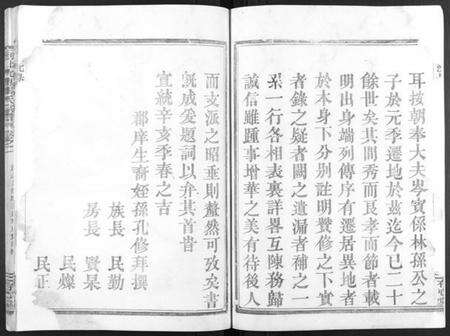 耳按朝奉大夫岑賓係林孫公之
子於元季遷地於茲迄今已二十
餘世矣其間秀而良孝而節者載
明出身端列傳序有遷居異地者
於本身下分別註明贊修之下實
者錄之疑者闕之遺漏者補之一
系一行各相表裏詳畧互陳務歸
誠信雖踵事增華之美有待後人
而支派之昭垂則釐然可攷矣書
既成爰題詞以弁其首皆
宣統辛亥季春之吉
郡庠生裔姪孫孔修拜撰
族長 民勤
房長 賢杲
民爍
民正